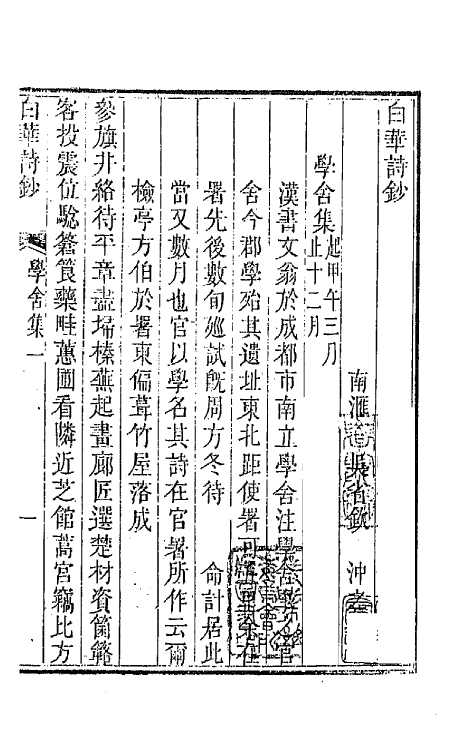 白華詩鈔
南滙 吳省欽 沖之
學舍集起甲午三月止十二月
漢書文翁於成都市南立學舍注學舍
官舍今郡學殆其遺址東北距使署可
署先後數旬廵試旣周方冬待 命計居此
當又數月也官以學名其詩在官署所作云爾
檢亭方伯於署東偏葺竹屋落成
參旗井絡待平章盡埽榛蕪起畫廊匠選楚材資箘簵
客投震位駐簦筤藥畦蕙圃看隣近芝館蒿宮竊比方
白華詩鈔 學舍集一 一